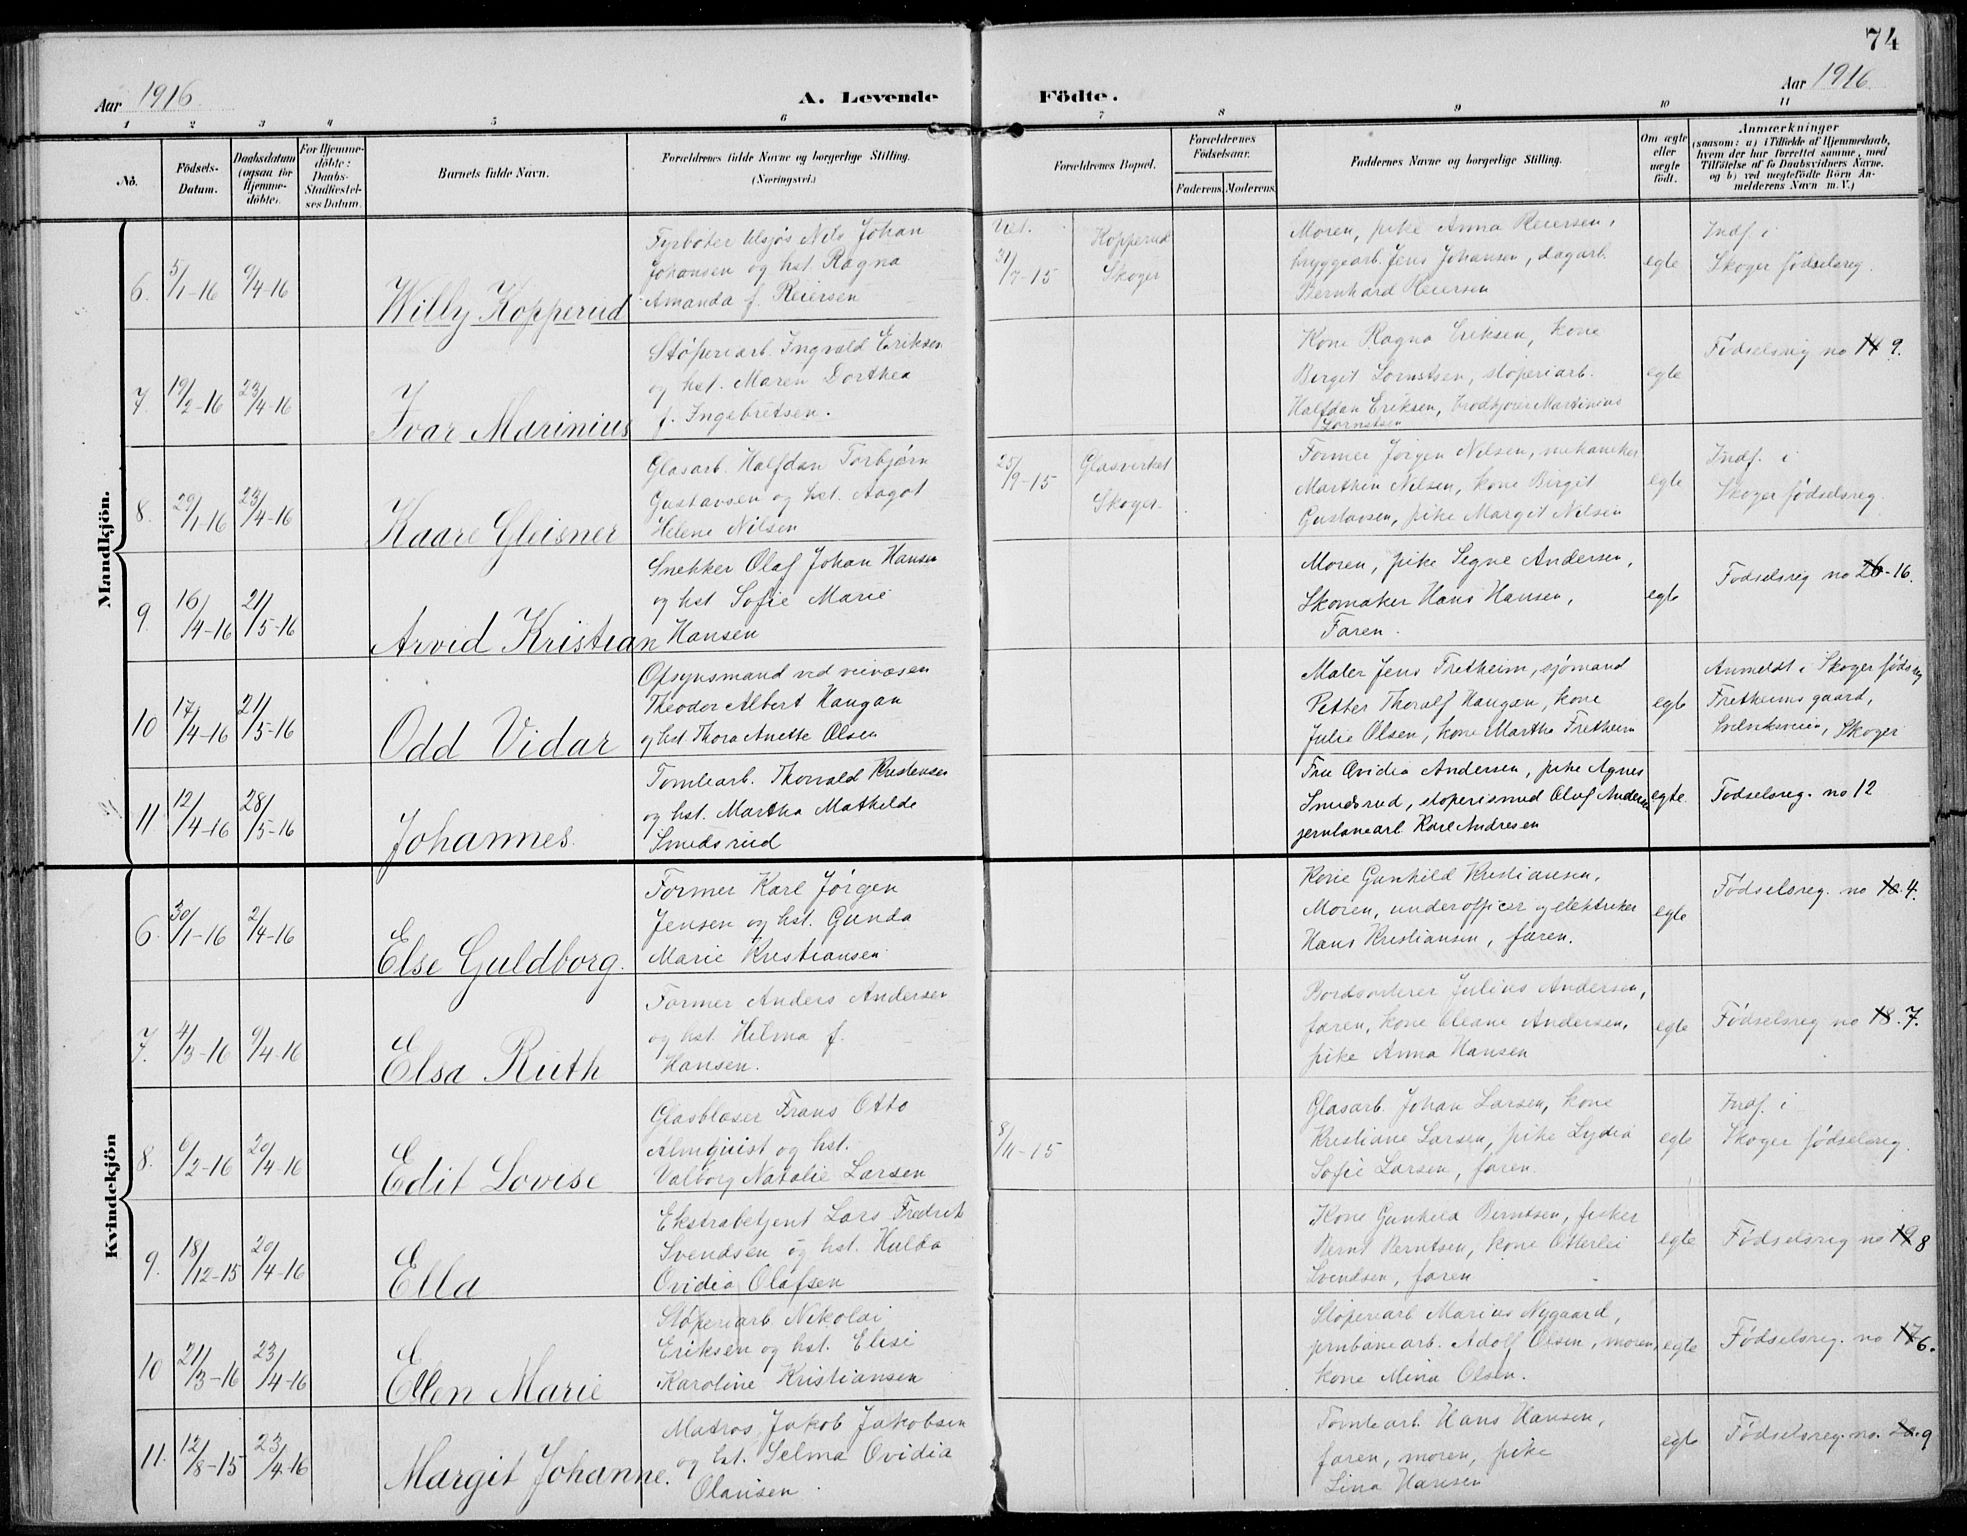 74
Aar 1916.
A. Levende
Födte.
Aar 1916
1 2 3 4 5 6 7 8 9 10 11
No.
Födsels-
Datum.
Daabsdatum
(ogsaa for
Hjemme-
döbte).
For Hjemme-
döbte:
Daabs-
Stadfæstel-
ses Datum.
Barnets fulde Navn.
Forældrenes fulde Navne og borgerlige Stilling.
(Næringsvei.)
Forældrenes Bopæl.
Forældrenes
Födselsaar.
Faderens. Moderens.
Faddernes Navne og borgerlige Stilling.
Om ægte
eller
uægte
født.
Anmærkninger
(saasom: a) i Tilfælde af Hjemmedaab,
hvem der har forrettet samme, med
Tilføielse af to Daabsvidners Navne.
og b) ved uægtefödte Börn An-
melderens Navn m. V.)
Mandkjön.
6. 5/1-16 9/4-16
Willy Kopperud
Fyrbøter tilsjøs Nils Johan
Johansen og hst. Ragna
Amanda f. Reiersen
31/7-15
Kopperud
Skoger
Moren, pike Anna Reiersen,
bryggearb. Jens Johansen, dagarb.
Bernhard Reiersen
egte
Indf. i
Skoger fødselsreg.
7. 19/2-16 23/4-16
Ivar Marinius
Støperiarb. Ingvald Eriksen
og hst. Maren Dorthea
f. Ingebretsen.
Kone Ragna Eriksen, kone
Birgit Lorntsen, støperiarb.
Halfdan Eriksen, brødkjører Martinius
Lorntsen
egte
Fødselsreg no 14 9.
8. 29/1-16 23/4-16
Kaare Gleisner
Glasarb. Halfdan Torbjørn
Gustavsen og hst. Aagot
Helene Nilsen
25/9-15
Glasverket
Skoger
Former Jørgen Nilsen, mekaniker
Marthin Nilsen, kone Birgit
Gustavsen, pike Margit Nilsen
egte
Indf. i
Skoger fødselsreg.
9. 16/4-16 21/5-16
Arvid Kristian
Snekker Olaf Johan Hansen
og hst Sofie Marie
Hansen
Moren, pike Segne Andersen,
Skomaker Hans Hansen,
Faren.
egte
Fødselsreg no 26-16.
10 17/4-16 21/5-16
Odd Vidar
Opsynsmand ved veivæsen
Theodor Albert Haugan
og hst Thora Anette Olsen
Maler Jens Fretheim, sjømand
Petter Thoralf Haugan, kone
Julie Olsen, kone Martha Fretheim
egte
Anmeldt i Skoger fødsreg
Fretheims gaard,
Svelviksveien, Skoger
11 12/4-16 28/5-16
Johannes.
Tomtearb. Thorvald Kristensen
og hst. Martha Mathilde
Smedsrud
Fru Ovidia Andersen, pike Agnes
Smedsrud, støperismed Oluf Andersen
jernbanearb. Karl Andresen
egte.
Fødselsreg. no 12
Kvindekjön
6. 30/1-16 2/4-16
Else Guldborg.
Former Karl Jørgen
Jensen og hst. Gunda
Marie Kristiansen
Kone Gunhild Kristiansen,
Moren, underofficer og elektriker
Hans Kristiansen, faren.
egte
Fødselsreg. no 10.4.
7. 4/3-16 9/4-16
Elsa Ruth
Former Anders Andersen
og hst. Hilma f.
Hansen.
Bordsorterer Julius Andersen,
faren, kone Oleane Andersen,
pike Anna Hansen
egte
Fødselsreg no 18.7.
8. 6/2-16 20/4-16
Edit Lovise
Glasblæser Frans Otto
Almquist og hst.
Valborg Natalie Larsen
8/11-15
Glasarb. Johan Larsen, kone
Kristiane Larsen, pike Lydia
Sofie Larsen, faren.
egte
Indf. i
Skoger fødselsreg.
9. 18/12-15 20/4-16
Ella
Ekstrabetjent Lars Fredrik
Svendsen og hst. Hulda
Ovidia Olafsen
Kone Gunhild Berntsen, fisker
Bernt Berntsen, kone Otterlei
Svendsen, faren
egte
Fødselsreg no 19 8
10 21/3-16 23/4-16
Ellen Marie
Støperiarb. Nikolai
Eriksen og hst. Elise
Karoline Kristiansen
Støperiarb Marius Nygaard,
jernbanearb. Adolf Olsen, moren,
kone Mina Olsen.
egte
Fødselsreg. no 17 6.
11. 12/8-15 23/4-16
Margit Johanne.
Matros Jakob Jakobsen
og hst. Selma Ovidia
Olausen
Tomtearb Hans Hansen,
faren, moren, pike
Lina Hansen
egte
Fødselsreg. no. 20.9